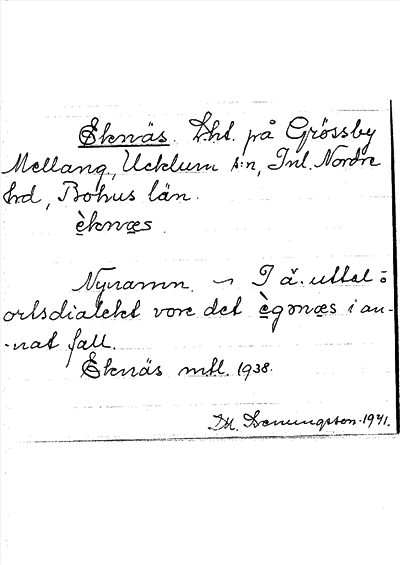 Eknäs. Lht. på Grössby
Mellang., Ucklum s:n, Inl. Nordre
hrd, Bohus län.
èknæs.
Nynamn. ~ I ä. uttal o
ortsdialekt vore det ègənæs i an-
-nat fall.
Eknäs mtl. 1938.
1941.